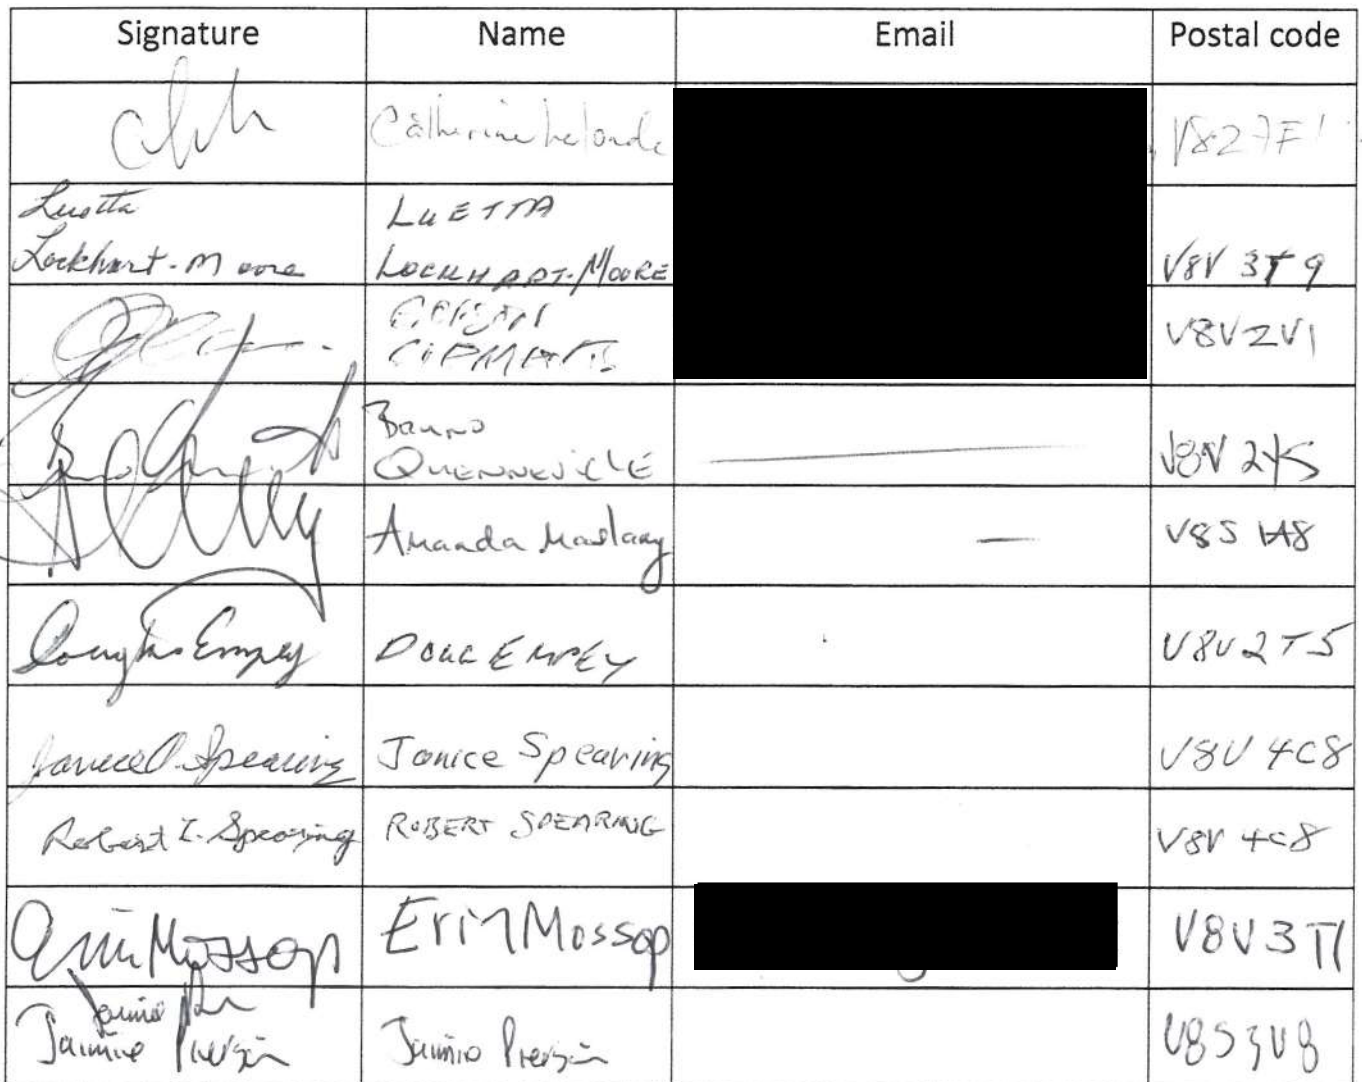 Signature Name Email Postal code
Catherine Lalonde
Luetta LUETTA
Lockhart-Moore LOCKHART-MOORE V8V 3T9
V8V2V1
Bruno
QUENNEVILLE V8V 2Y5
Amanda V8S 1A8
Douglas Empey DOUG EMPEY V8V2T5
Janice Spearing Janice Spearing V8V 4C8
Robert I. Spearing ROBERT SPEARING V8V 4C8
Erin Mossop Erin Mossop V8V3T1
Jaimie
Jaimie V8S3V8